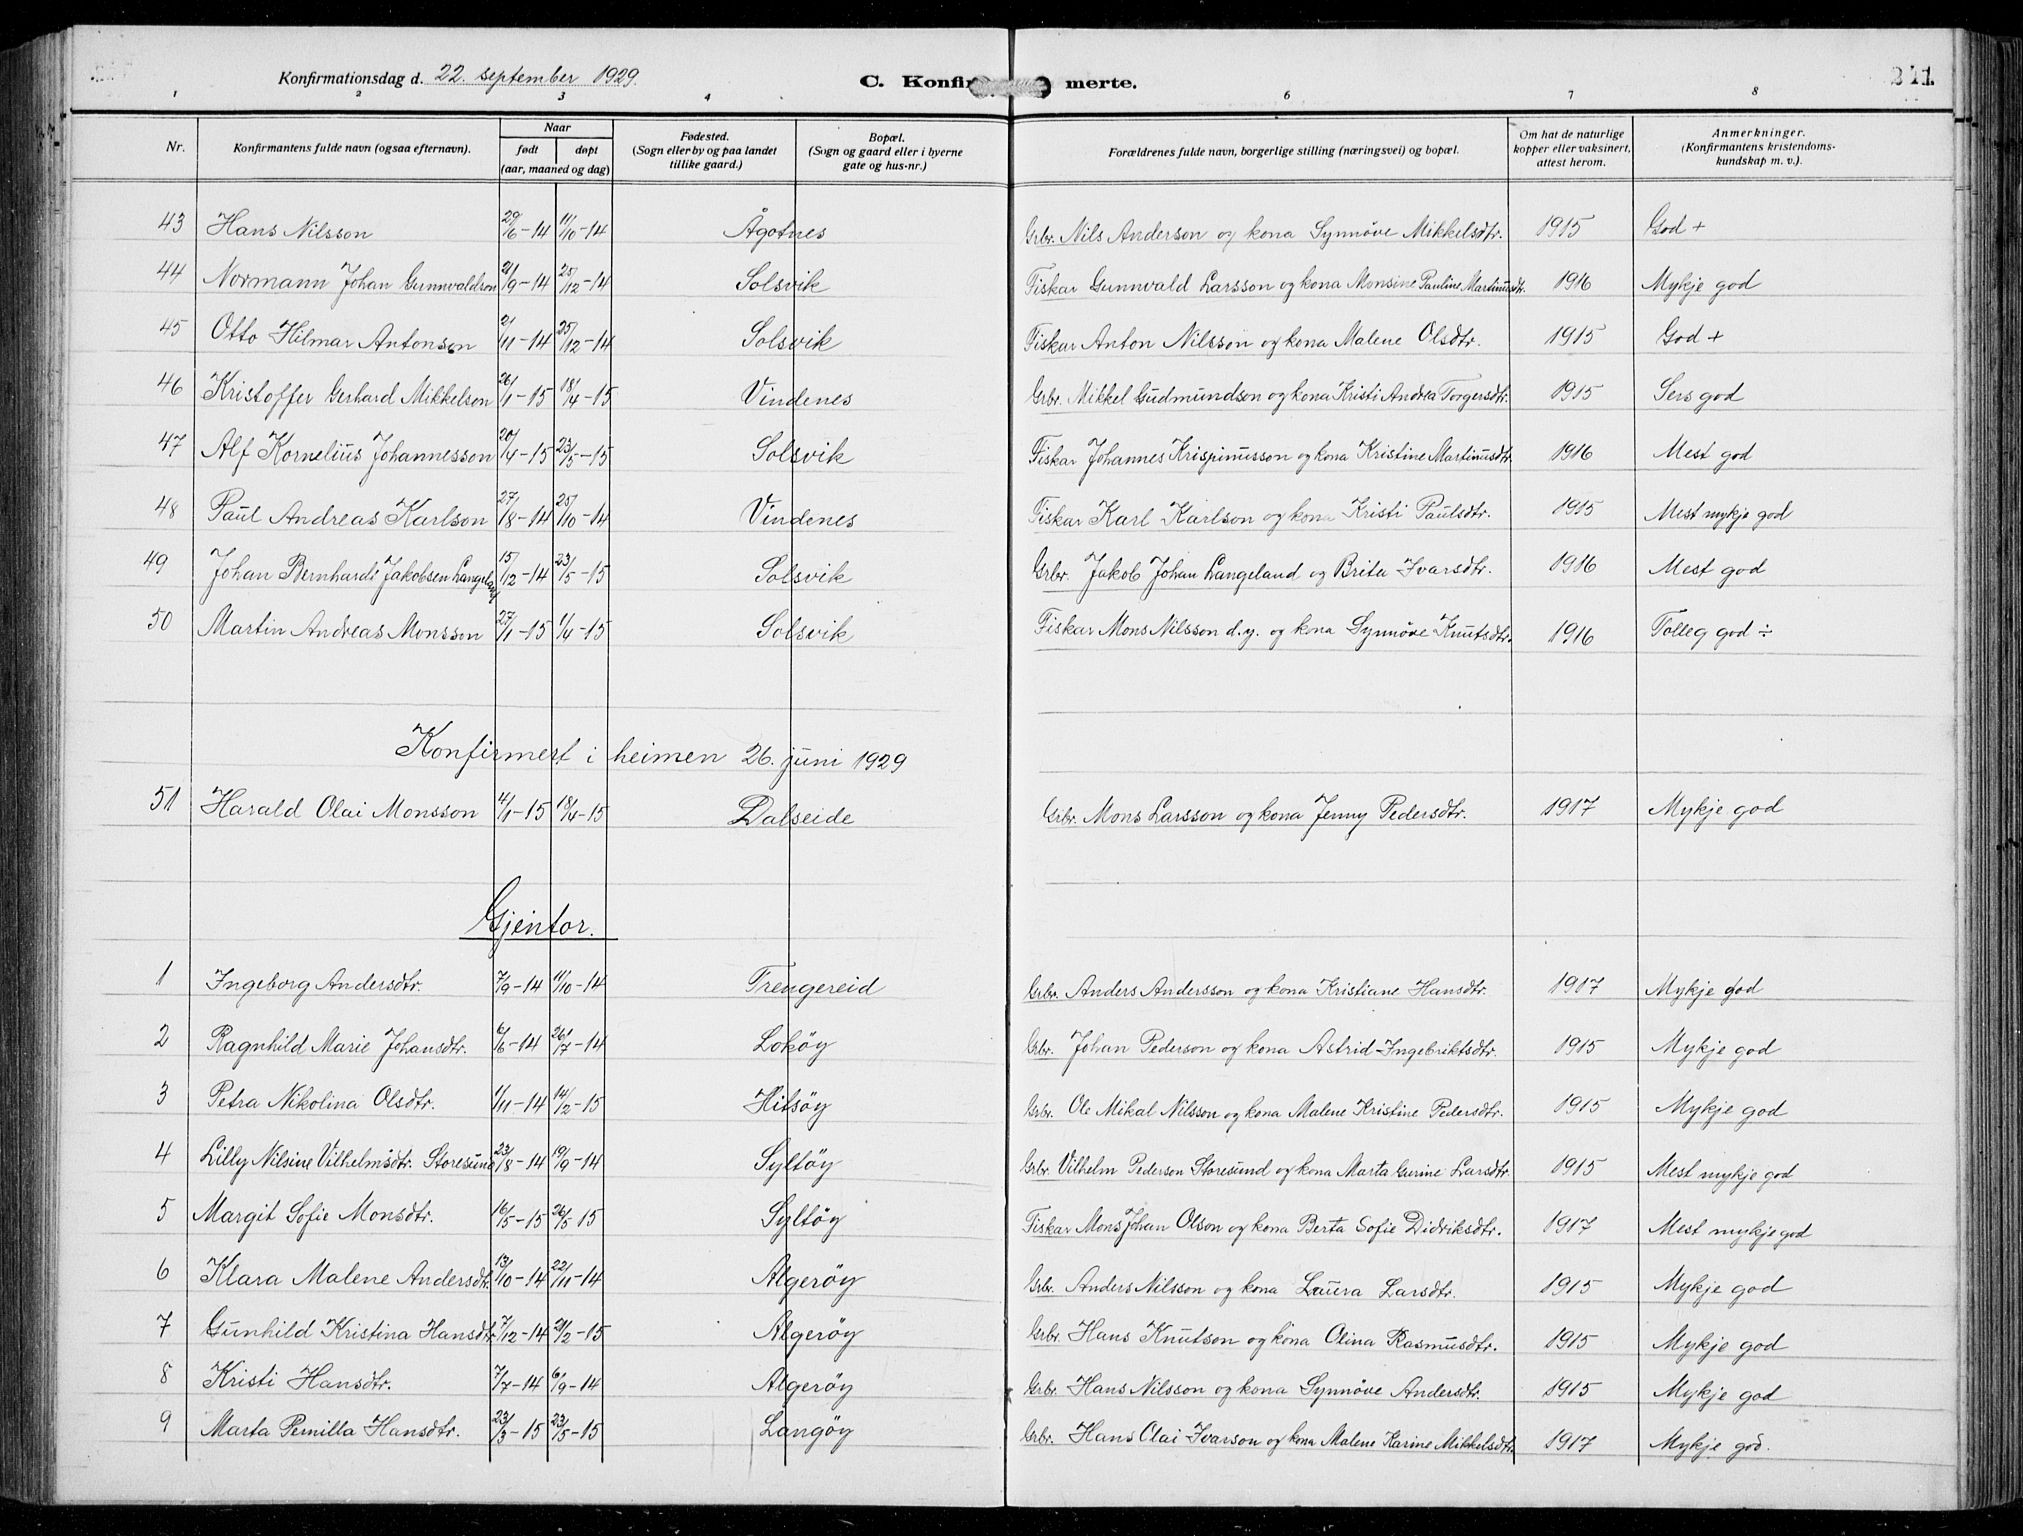 Konfirmationsdag d. 22. september 1929. C. Konfir merte. 241.
1 2 3 4 6 7 8
Nr. Konfirmantens fulde navn (ogsaa efternavn). Naar født døpt (aar, maaned og dag) Fødested. (Sogn eller by og paa landet tillike gaard.) Bopæl. (Sogn og gaard eller i byerne gate og hus-nr.) Forældrenes fulde navn, borgerlige stilling (næringsvei) og bopæl. Om hat de naturlige kopper eller vaksinert, attest herom. Anmerkninger. (Konfirmantens kristendomskundskap m. v.).
43 Hans Nilsson 29/6-14 11/10-14 Ågotnes Grbr. Nils Anderson og kona Synnöve Mikkelsdtr. 1915 God +
44 Normann Johan Gunnvaldson 21/9-14 25/12-14 Solsvik Fiskar Gunnvald Larsson og kona Monsine Pauline Martinusdtr. 1916 Mykje god
45 Otto Hilmar Antonson 2/11-14 25/12-14 Solsvik Fiskar Anton Nilsson og kona Malene Olsdtr. 1915 God +
46 Kristoffer Gerhard Mikkelson 26/1-15 18/4-15 Vindenes Grbr. Mikkel Gudmundson og kona Kristi Andrea Torgersdtr. 1915 Sers god
47 Alf Kornelius Johannesson 20/4-15 23/5-15 Solsvik Fiskar Johannes Krispinusson og kona Kristine Martinusdtr. 1916 Mest god
48 Paul Andreas Karlson 27/8-14 25/10-14 Vindenes Fiskar Karl Karlson og kona Kristi Paulsdtr. 1915 Mest mykje god
49 Johan Bernhard Jakobsen Langeland 15/12-14 23/5-15 Solsvik Grbr. Jakob Johan Langeland og Brita Ivarsdtr. 1916 Mest god
50 Martin Andreas Monsson 27/1-15 1/4-15 Solsvik Fiskar Mons Nilsson d.y. og kona Synnöve Knutsdtr. 1916 Tolleg god ÷
Konfirmert i heimen 26. juni 1929
51 Harald Olai Monsson 4/1-15 18/4-15 Dalseide Grbr. Mons Larsson og kona Jenny Pedersdtr. 1917 Mykje god
Gjentor.
1 Ingeborg Andersdtr. 7/9-14 11/10-14 Trengereid Grbr. Anders Andersson og kona Kristiane Hansdtr. 1917 Mykje god
2 Ragnhild Marie Johansdtr. 6/6-14 26/7-14 Loköy Grbr. Johan Pederson og kona Astrid Ingebriktsdtr. 1915 Mykje god
3 Petra Nikolina Olsdtr. 1/11-14 14/2-15 Hitsöy Grbr. Ole Mikal Nilsson og kona Malene Kristine Pedersdtr. 1915 Mykje god
4 Lilly Nilsine Vilhelmsdtr. Storesund 23/8-14 19/9-14 Syltöy Grbr. Vilhelm Pederson Storesund og kona Marta Gurine Larsdtr. 1915 Mest mykje god
5 Margit Sofie Monsdtr. 16/5-15 26/5 15 Syltöy Fiskar Mons Johan Olson og kona Berta Sofie Didriksdtr. 1917 Mest mykje god
6 Klara Malene Andersdtr. 13/10-14 22/11-14 Algeröy Grbr. Anders Nilsson og kona Laura Larsdtr. 1915 Mykje god
7 Gunhild Kristina Hansdtr. 7/12-14 21/2-15 Algeröy Grbr. Hans Knutson og kona Olina Rasmusdtr. 1915 Mykje god
8 Kristi Hansdtr. 7/7-14 6/9-14 Algeröy Grbr. Hans Nilsson og kona Synnöve Andersdtr. 1915 Mykje god
9 Marta Pernilla Hansdtr. 23/3-15 23/5-15 Langöy Grbr. Hans Olai Ivarson og kona Malene Karine Mikkelsdtr. 1917 Mykje god.